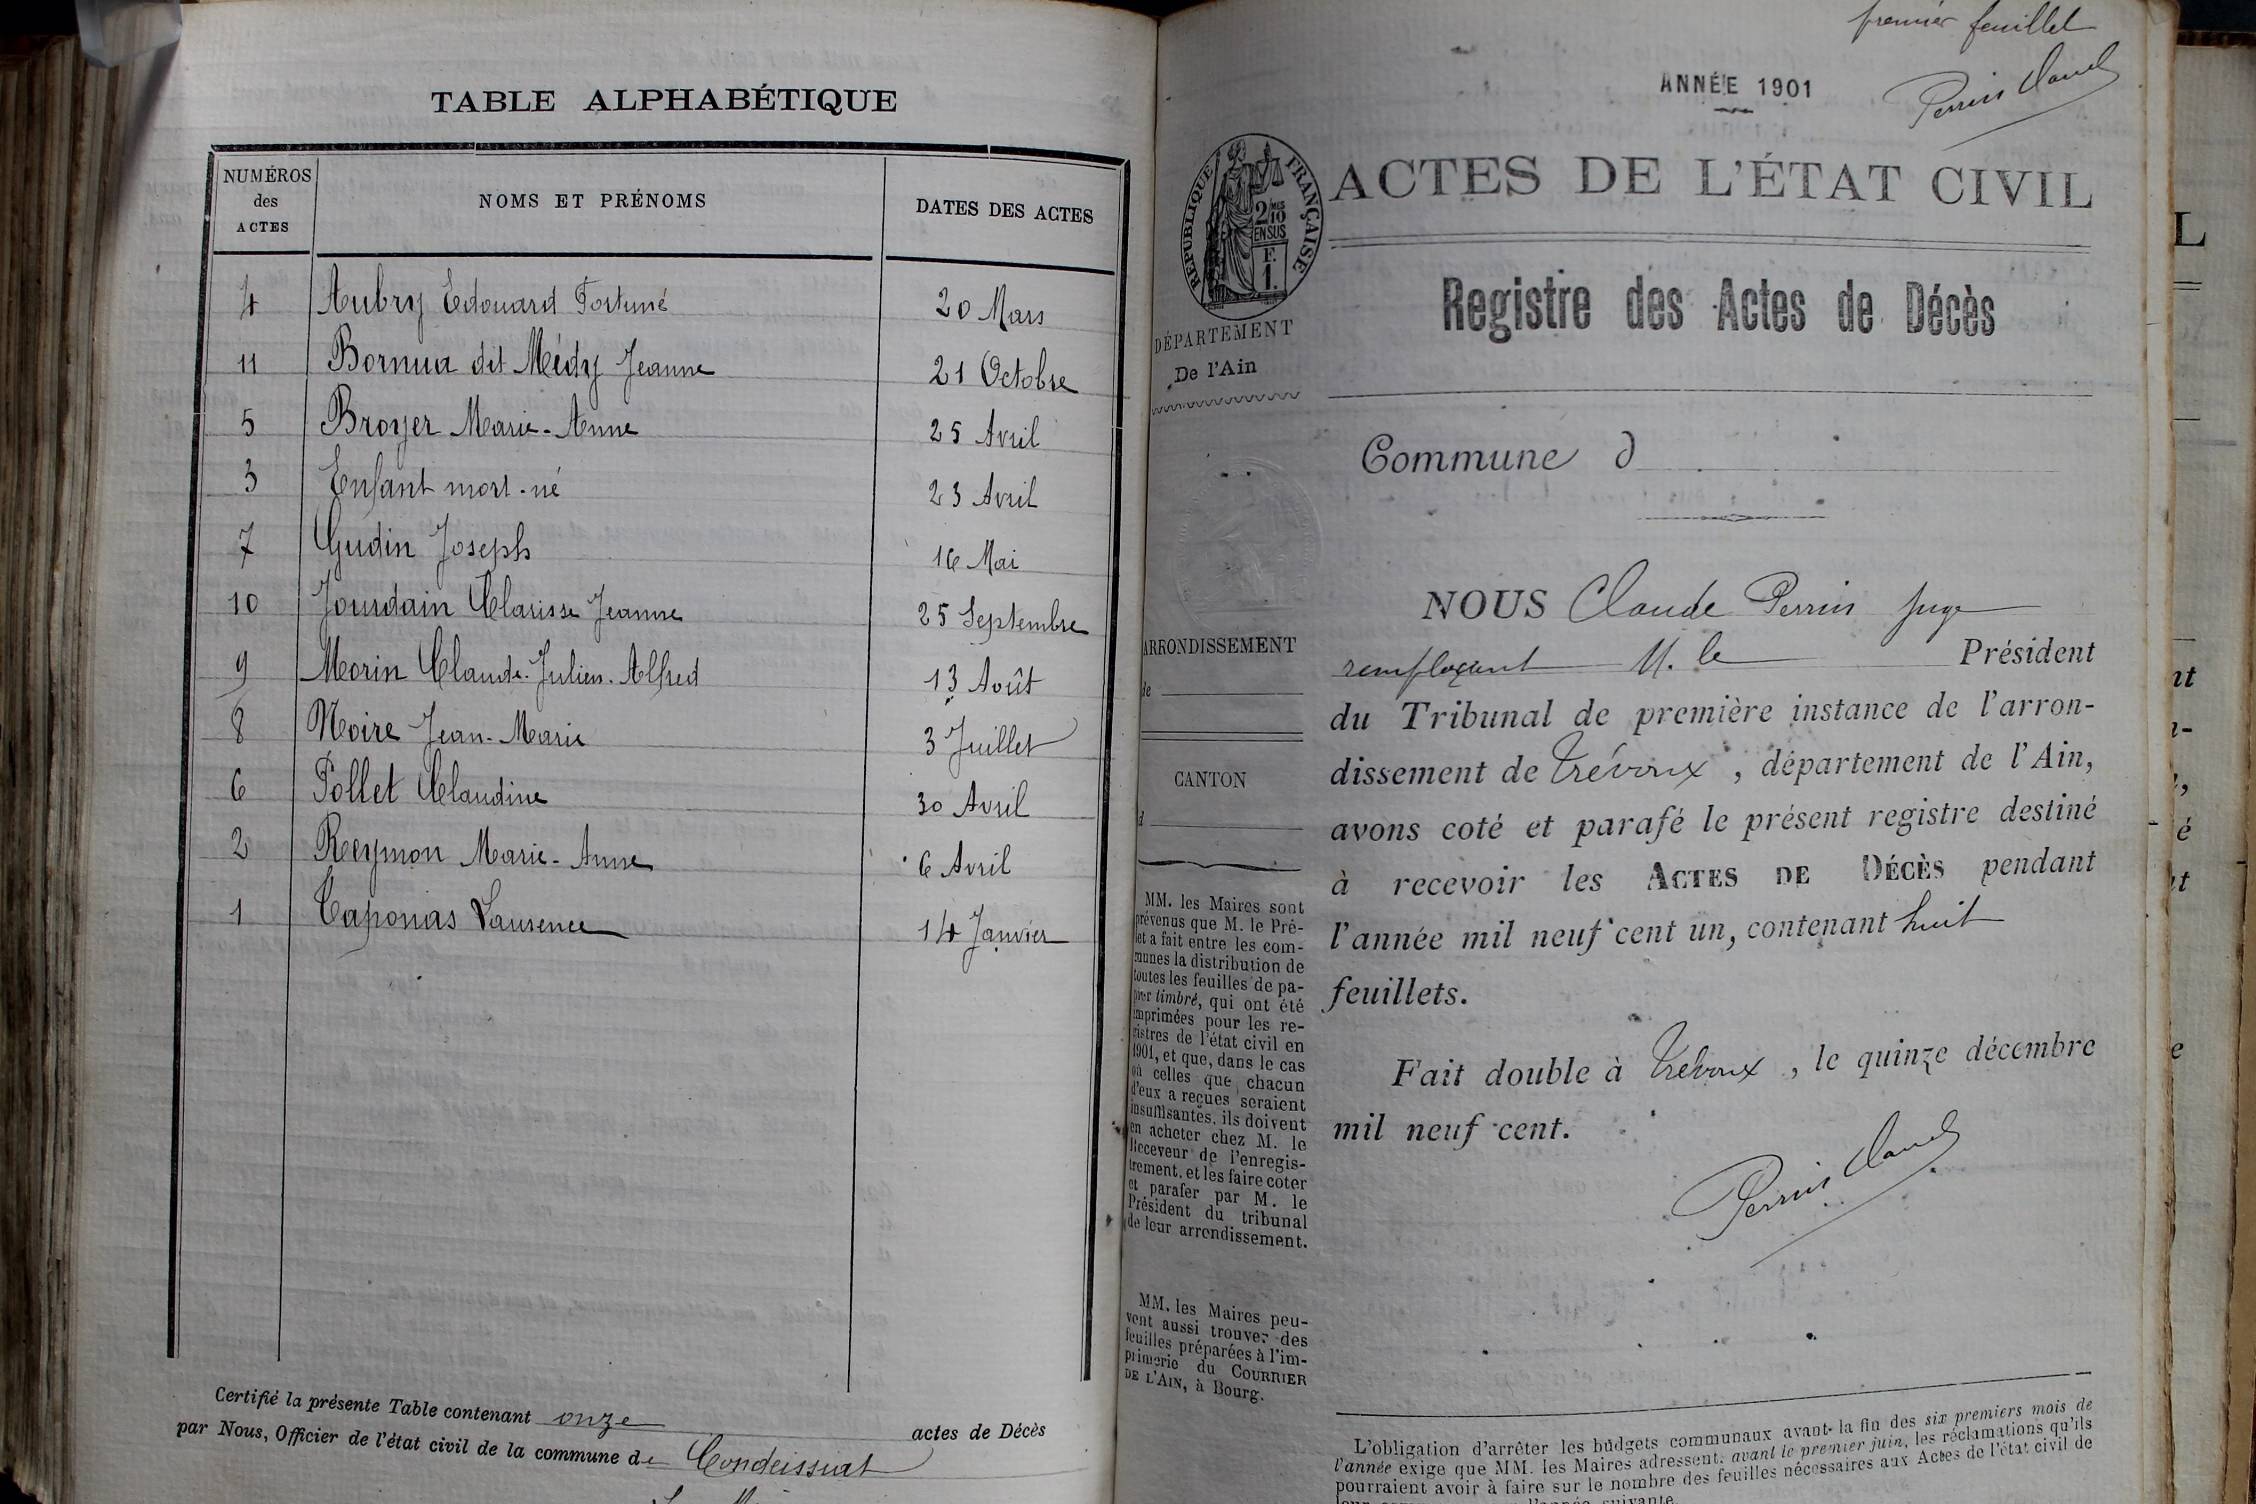 TABLE ALPHABÉTIQUE
NUMÉROS
des
ACTES
NOMS ET PRÉNOMS
DATES DES ACTES
4 Aubry Edouard Fortuné 20 Mars
11 Bornua dit Médy Jeanne 21 Octobre
5 Broyer Marie-Anne 25 Avril
3 Enfant mort-né 23 Avril
7 Gudin Joseph 16 Mai
10 Jourdain Clarisse Jeanne 25 Septembre
9 Morin Claude-Julien-Alfred 13 Août
8 Noire Jean-Marie 3 Juillet
6 Pollet Claudine 30 Avril
2 Reymon Marie-Anne 6 Avril
1 Taponas Laurence 14 Janvier
Certifié la présente Table contenant onze actes de Décès
par Nous, Officier de l'état civil de la commune de Condeissiat
premier feuillet
Perrin Claude
ANNÉE 1901
RÉPUBLIQUE FRANÇAISE
2 MES
10
EN SUS
F.
1.
ACTES DE L'ÉTAT CIVIL
Registre des Actes de Décès
DÉPARTEMENT
De l'Ain
Commune d
NOUS Claude Perrin juge
remplaçant M. le Président
du Tribunal de première instance de l'arron-
dissement de Trévoux, département de l'Ain,
avons coté et parafé le présent registre destiné
à recevoir les ACTES DE DÉCÈS pendant
l'année mil neuf cent un, contenant huit
feuillets.
Fait double à Trévoux, le quinze décembre
mil neuf cent.
Perrin Claude
ARRONDISSEMENT
de
CANTON
d
MM. les Maires sont
prévenus que M. le Pré-
fet a fait entre les com-
munes la distribution de
toutes les feuilles de pa-
pier timbré, qui ont été
imprimées pour les re-
gistres de l'état civil en
1901, et que, dans le cas
où celles que chacun
d'eux a reçues seraient
insuffisantes, ils doivent
en acheter chez M. le
Receveur de l'enregis-
trement, et les faire coter
et parafer par M. le
Président du tribunal
de leur arrondissement.
MM. les Maires peu-
vent aussi trouver des
feuilles préparées à l'im-
primerie du COURRIER
DE L'AIN, à Bourg.
L'obligation d'arrêter les budgets communaux avant la fin des six premiers mois de
l'année exige que MM. les Maires adressent, avant le premier juin, les réclamations qu'ils
pourraient avoir à faire sur le nombre des feuilles nécessaires aux Actes de l'état civil de